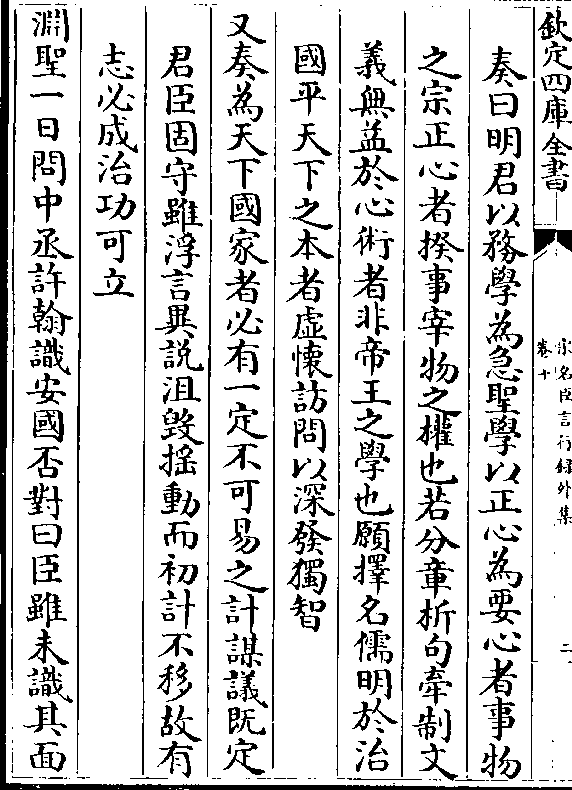 欽定四庫全書
宋名臣言行錄外集
卷十
二
奏曰明君以務學為急聖學以正心為要心者事物
之宗正心者揆事宰物之權也若分章析句牽制文
義無益於心術者非帝王之學也願擇名儒明於治
國平天下之本者虛懷訪問以深發獨智
又奏為天下國家者必有一定不可易之計謀議既定
君臣固守雖浮言異説沮毀搖動而初計不移故有
志必成治功可立
淵聖一日問中丞許翰識安國否對曰臣雖未識其面